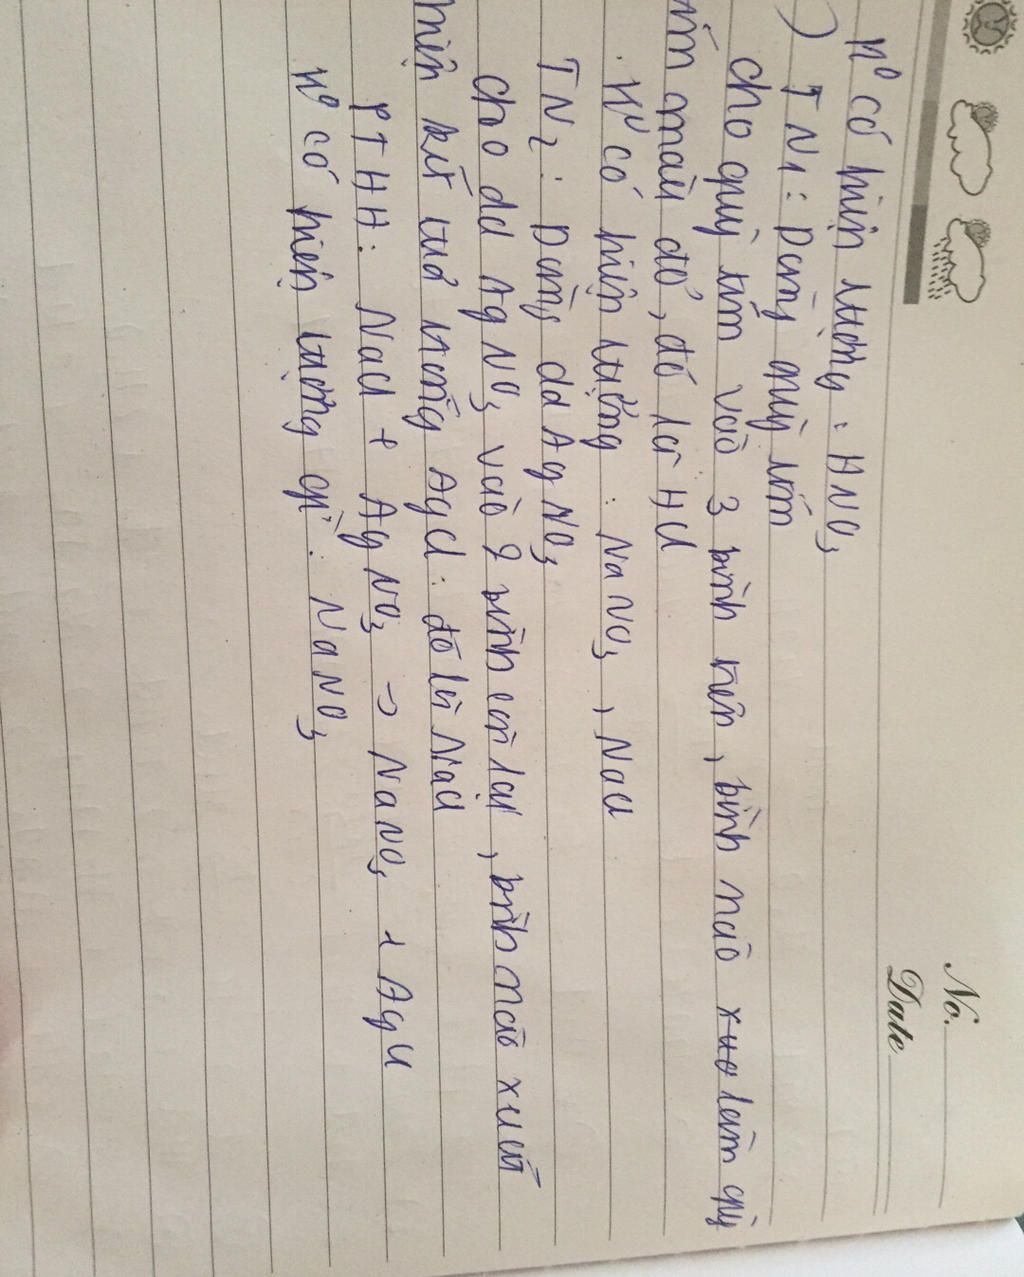 No.
Date
No có hiện tượng : HNO3
) TN1 : Dùng quỳ tím
cho quỳ tím vào 3 bình trên, bình nào xuô làm quỳ
tím chuyển đỏ, đó là HCl
. No có hiện tượng : NaNO3, NaCl
TN2 : Dùng dd AgNO3
Cho dd AgNO3 vào 2 bình còn lại, bình nào xuất
hiện kết tủa trắng AgCl : đó là NaCl
PTHH : NaCl + AgNO3 → NaNO3 + AgCl
No có hiện tượng gì : NaNO3